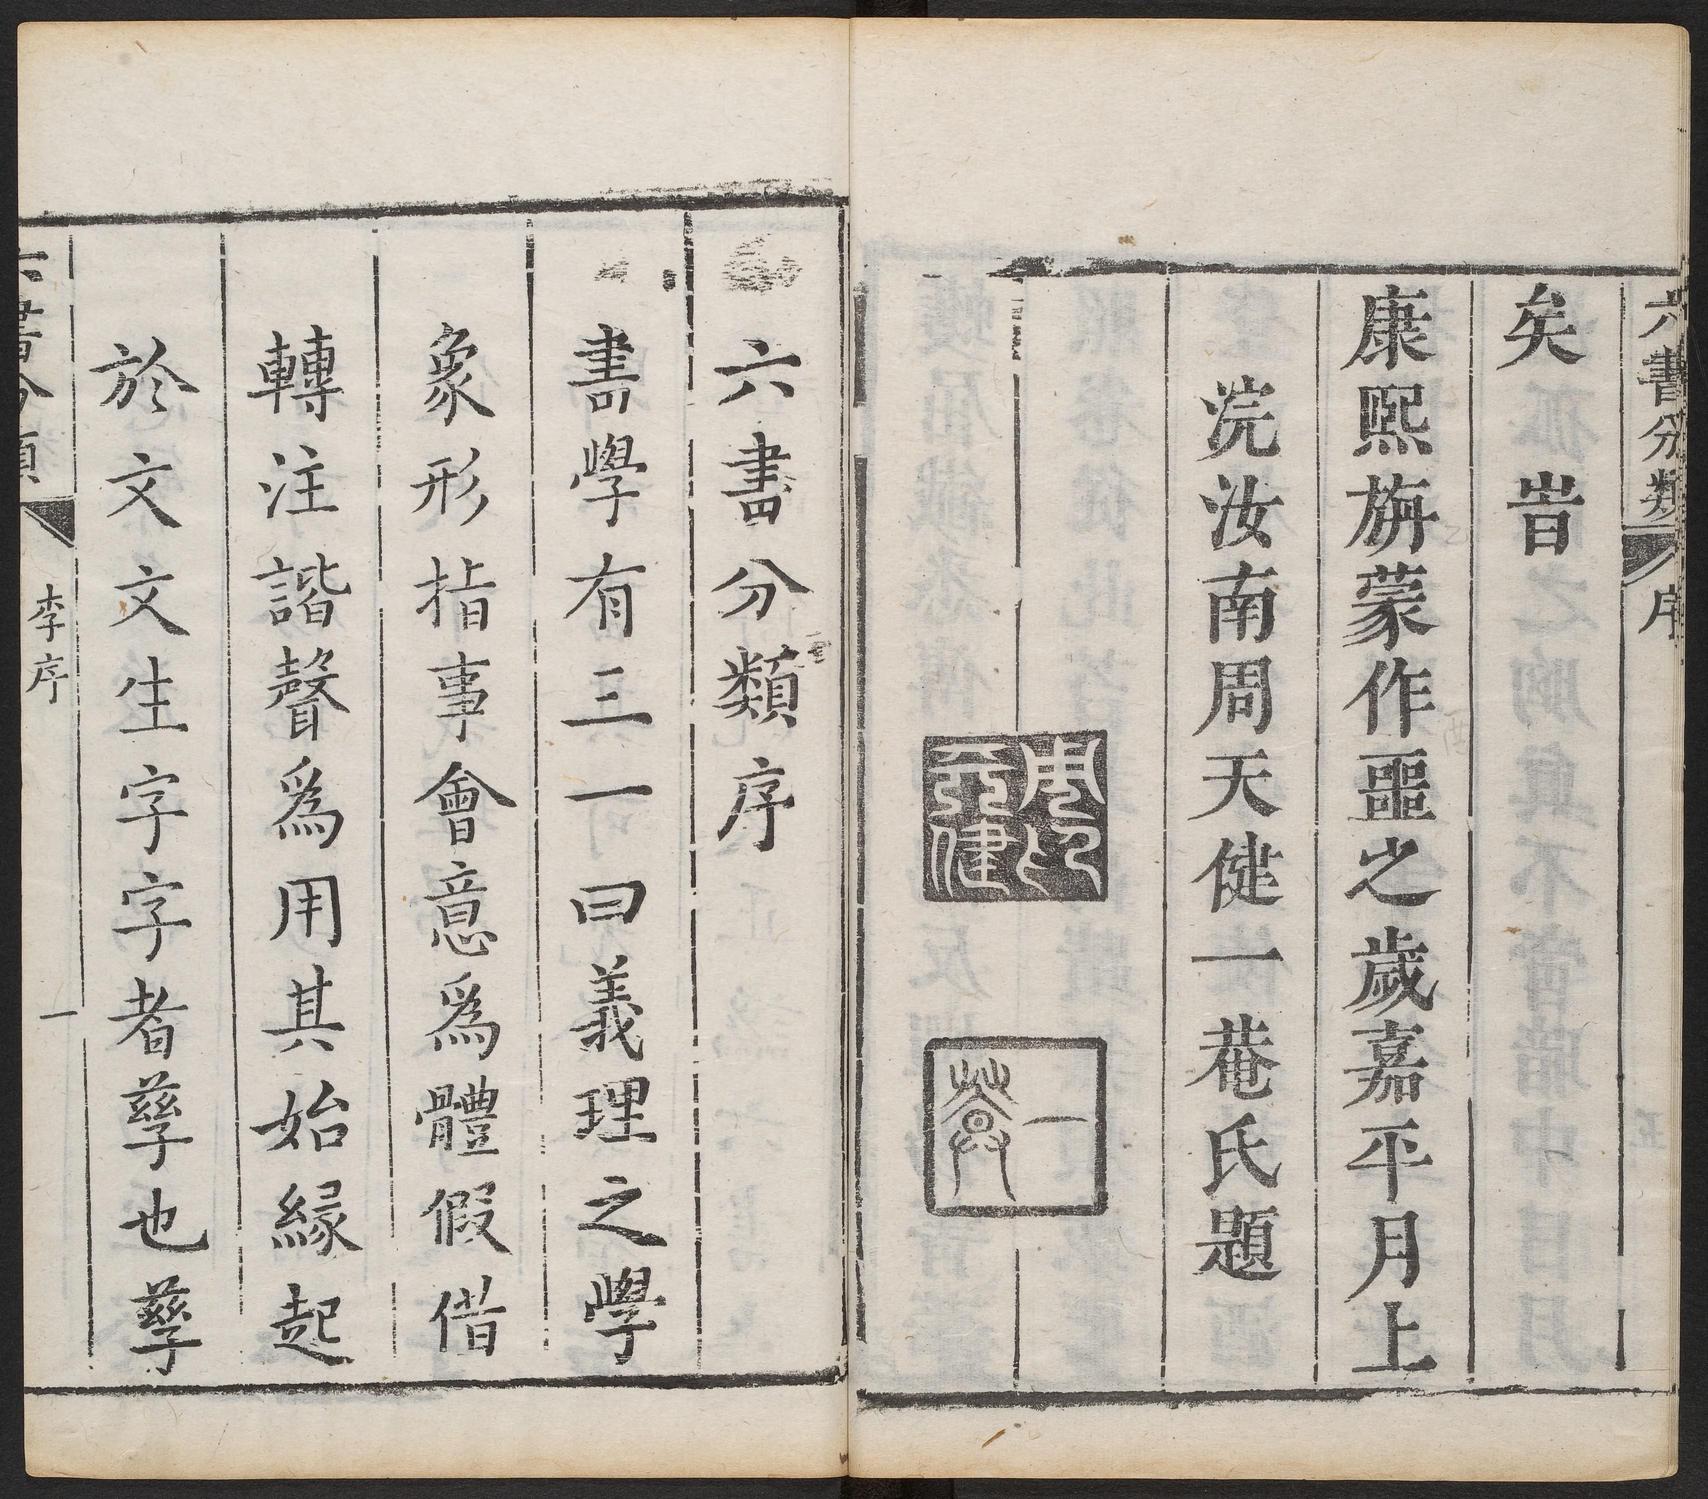 六書分類 序
矣旹
康熙旃蒙作噩之歲嘉平月上
浣汝南周天健一菴氏題
周印天健
一菴
六書分類序
書學有三一曰義理之學
象形指事會意爲體假借
轉注諧聲爲用其始緣起
於文文生字字者孳也孳
六書分類 李序 一